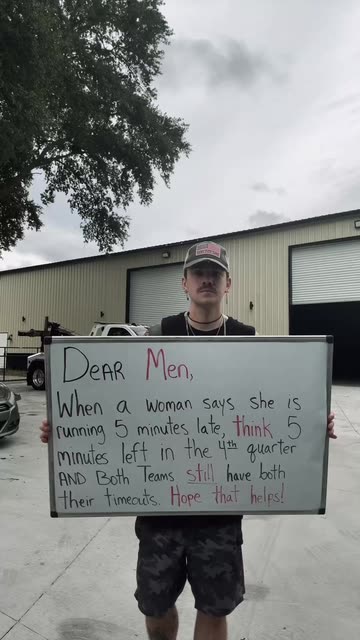 DEAR Men,
When a woman says she is
running 5 minutes late, think 5
minutes left in the 4th quarter
AND Both Teams still have both
their timeouts. Hope that helps!